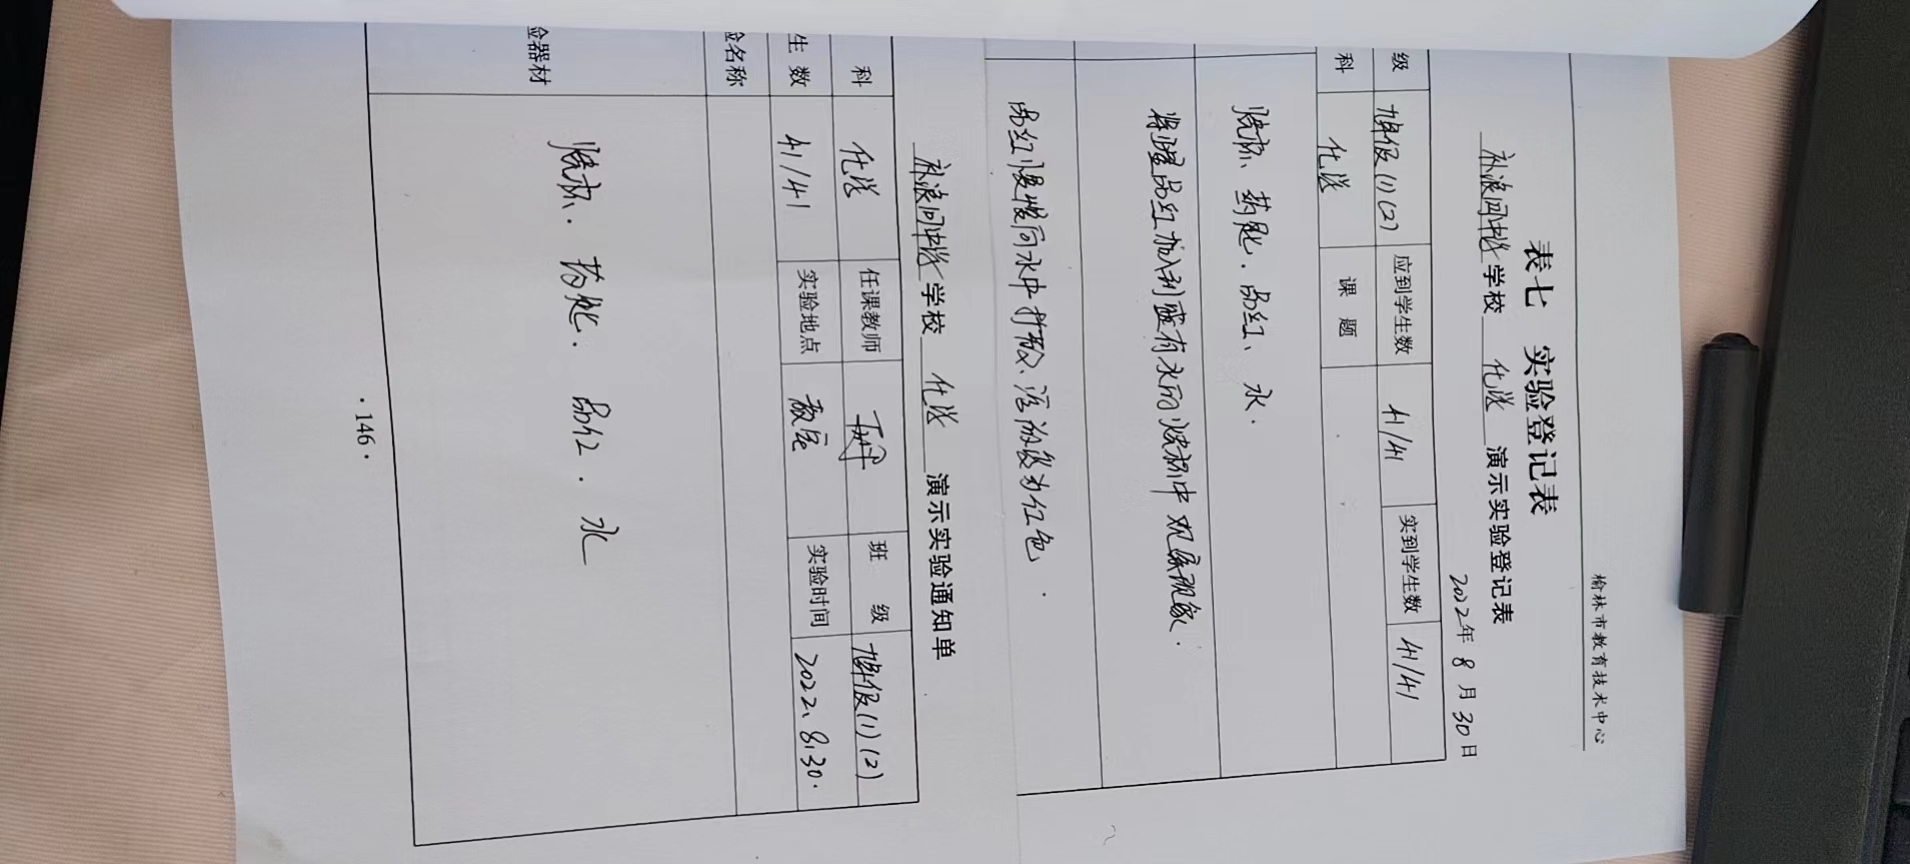 榆林市教育技术中心
表七 实验登记表
补浪河中学学校 化学 演示实验登记表
2022年 8 月 30日
级 九年级(1)(2) 应到学生数 41/41 实到学生数 41/41
科 化学 课 题
烧杯、药匙.品红、水.
将少量品红加入到盛有水的烧杯中观察现象.
品红慢慢向水中扩散、溶液变为红色.
补浪河中学学校 化学 演示实验通知单
科 化学 任课教师 班 级 九年级(1)(2)
生 数 41/41 实验地点 教室 实验时间 2022.8.30.
验名称
验器材 烧杯.药匙.品红.水
·146·